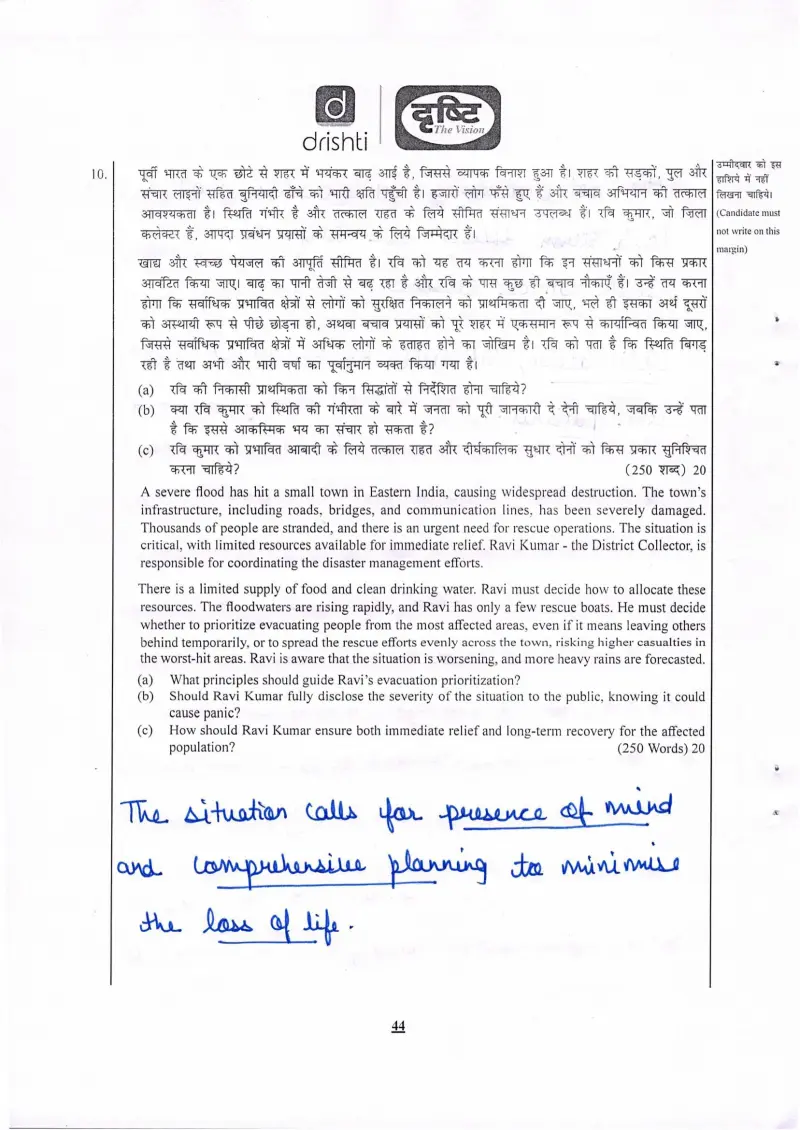 d
drishti
दृष्टि
The Vision
उम्मीदवार को इस
हाशिये में नहीं
लिखना चाहिये।
(Candidate must
not write on this
margin)
10.
पूर्वी भारत के एक छोटे से शहर में भयंकर बाढ़ आई है, जिससे व्यापक विनाश हुआ है। शहर की सड़कों, पुल और
संचार लाइनों सहित बुनियादी ढाँचे को भारी क्षति पहुँची है। हजारों लोग फँसे हुए हैं और बचाव अभियान की तत्काल
आवश्यकता है। स्थिति गंभीर है और तत्काल राहत के लिये सीमित संसाधन उपलब्ध हैं। रवि कुमार, जो ज़िला
कलेक्टर हैं, आपदा प्रबंधन प्रयासों के समन्वय के लिये जिम्मेदार हैं।
खाद्य और स्वच्छ पेयजल की आपूर्ति सीमित है। रवि को यह तय करना होगा कि इन संसाधनों को किस प्रकार
आवंटित किया जाए। बाढ़ का पानी तेजी से बढ़ रहा है और रवि के पास कुछ ही बचाव नौकाएँ हैं। उन्हें तय करना
होगा कि सर्वाधिक प्रभावित क्षेत्रों से लोगों को सुरक्षित निकालने को प्राथमिकता दी जाए, भले ही इसका अर्थ दूसरों
को अस्थायी रूप से पीछे छोड़ना हो, अथवा बचाव प्रयासों को पूरे शहर में एकसमान रूप से कार्यान्वित किया जाए,
जिससे सर्वाधिक प्रभावित क्षेत्रों में अधिक लोगों के हताहत होने का जोखिम है। रवि को पता है कि स्थिति बिगड़
रही है तथा अभी और भारी वर्षा का पूर्वानुमान व्यक्त किया गया है।
(a) रवि की निकासी प्राथमिकता को किन सिद्धांतों से निर्देशित होना चाहिये?
(b) क्या रवि कुमार को स्थिति की गंभीरता के बारे में जनता को पूरी जानकारी दे देनी चाहिये, जबकि उन्हें पता
है कि इससे आकस्मिक भय का संचार हो सकता है?
(c) रवि कुमार को प्रभावित आबादी के लिये तत्काल राहत और दीर्घकालिक सुधार दोनों को किस प्रकार सुनिश्चित
करना चाहिये? (250 शब्द) 20
A severe flood has hit a small town in Eastern India, causing widespread destruction. The town's
infrastructure, including roads, bridges, and communication lines, has been severely damaged.
Thousands of people are stranded, and there is an urgent need for rescue operations. The situation is
critical, with limited resources available for immediate relief. Ravi Kumar - the District Collector, is
responsible for coordinating the disaster management efforts.
There is a limited supply of food and clean drinking water. Ravi must decide how to allocate these
resources. The floodwaters are rising rapidly, and Ravi has only a few rescue boats. He must decide
whether to prioritize evacuating people from the most affected areas, even if it means leaving others
behind temporarily, or to spread the rescue efforts evenly across the town, risking higher casualties in
the worst-hit areas. Ravi is aware that the situation is worsening, and more heavy rains are forecasted.
(a) What principles should guide Ravi's evacuation prioritization?
(b) Should Ravi Kumar fully disclose the severity of the situation to the public, knowing it could
cause panic?
(c) How should Ravi Kumar ensure both immediate relief and long-term recovery for the affected
population? (250 Words) 20
The situation calls for presence of mind
and comprehensive planning to minimise
the loss of life.
44